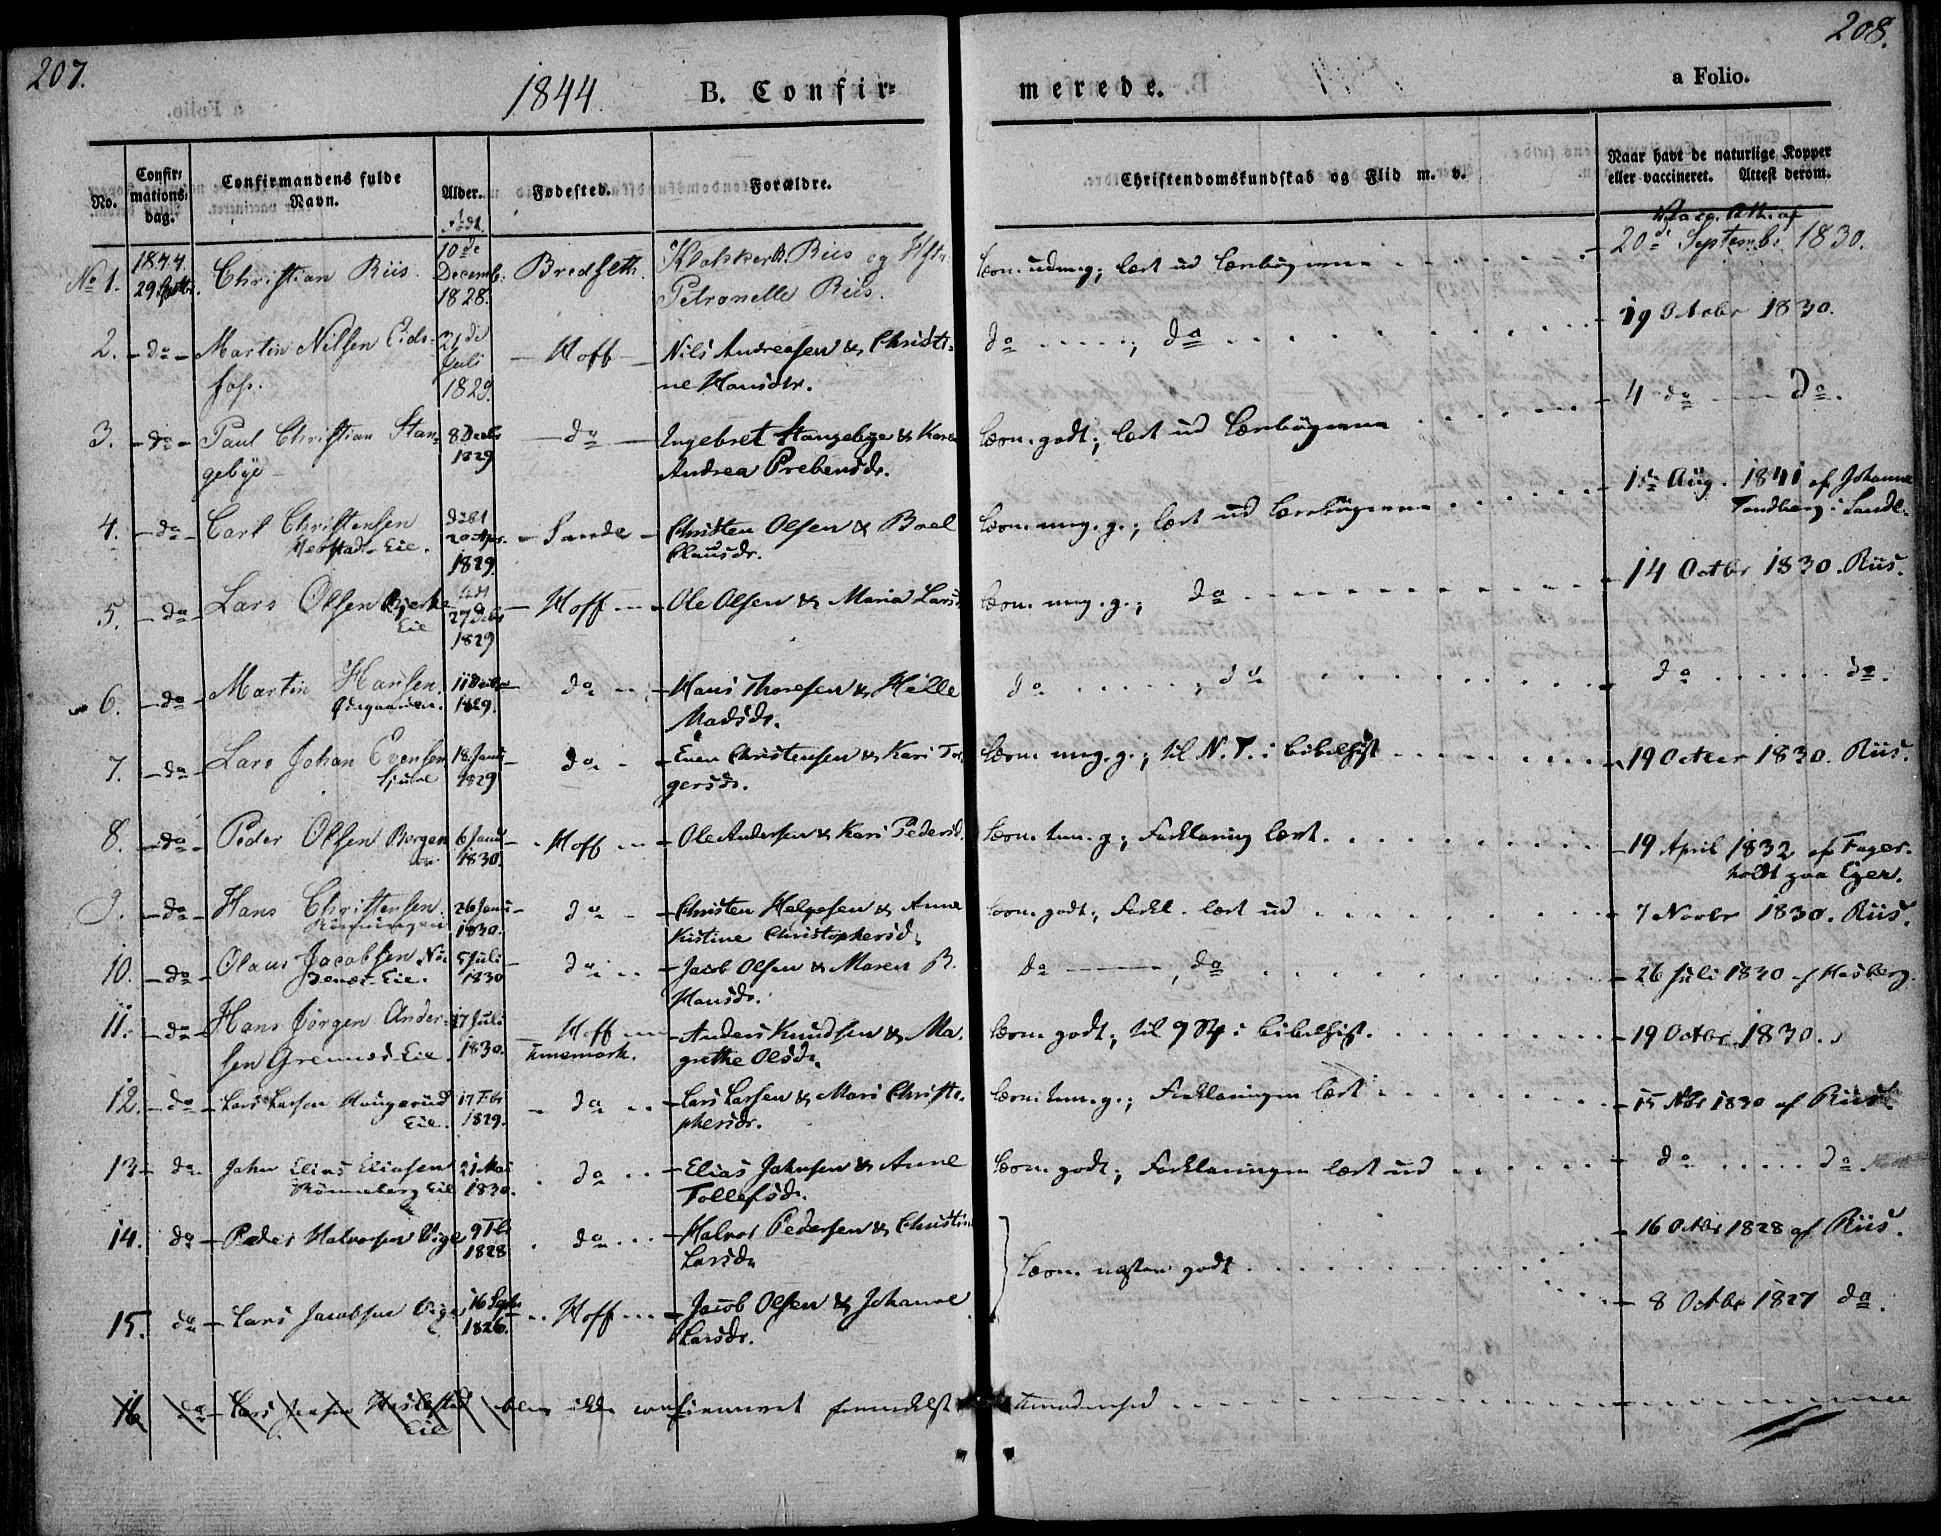 207.
208.
1844.
B. Confir=
merede.
a Folio.
No.
Confir=
mations=
dag.
Confirmandens fulde
Navn.
Alder.
Fødested.
Forældre.
Christendomskundskab og Flid m. v.
Naar havt de naturlige Kopper
eller vaccineret. Attest derom.
født
Vacc. Att. af
No 1.
1844
29 Septbr.
Christian Riis.
10de
Decemb.
1828.
Bredseth.
Klokker B. Riis og Hstr.
Petronelle Riis.
læst ud Lærebøgerne
20de Septembr 1830.
2. - do -
Martin Nilsen Eids-
foss.
21de
Juli
1829.
- Hoff -
Nils Andreasen & Christi-
ne Hansdtr.
do ; do
19 Octobr 1830.
3. - do -
Paul Christian Stan-
gebye
8 Decbr
1829
- do -
Ingebret Stangebye & Karen
Andrea Prebensdr.
Læsn. godt; læst ud Lærebøgerne
4 do do.
4. - do -
Carl Christensen
Eie.
døbt
20 Apr.
1829.
- Sande -
Christen Olsen & Boel
Clausdr.
Læsn. mg. g.; læst ud Lærebøgerne
Aug. 1841 af Johanne
Tandberg i Sande.
5. - do -
Lars Olsen Bjerke
Eie
27 Decbr
1829
- Hoff -
Ole Olsen & Maria Larsd.
Læsn. mg. g.; do
14 Octbr 1830. Riis.
6. - do -
Martin Hansen
1829.
do
Hans Thoresen & Helle
Madsdr.
do ; do
do do.
7. - do -
Lars Johan Evensen
18 Janr
1829
do -
Even Christensen & Kari Tor-
gersdr.
Læsn. mg. g.; til N. T. i Bibelhist
19 Octbr 1830. Riis.
8. - do -
Peder Olsen Borgen
Eie
6 Janr
1830.
Hoff
Ole Andersen & Kari Pedersd.
Læsn. tem. g; Forklaring lært.
19 April 1832 af Fager-
holdt paa Eger.
9. - do -
Hans Christensen
26 Janr
1830.
do -
Christen Helgesen & Anne
Kistine Christophersd.
Læsn. godt; Forkl. lært ud
7 Novbr 1830. Riis.
10. - do -
Olaus Jacobsen
Eie.
5 Juli
1830
do
Jacob Olsen & Maren B.
Hansdr.
do , do
26 Juli 1830 af Hasberg.
11. - do -
Hans Jörgen Ander-
sen Grennes Eie.
17 Juli
1830.
Hoff
Anders Knudsen & Ma-
grethe Olsdr.
Læsn. godt; til i Bibelhist.
19 Octbr 1830.
12. - do -
Lars Larsen Haugerud
Eie.
17 Febr
1829.
- do
Lars Larsen & Mari Christo-
phersdr.
Læsn. tem. g.; Forklaringen lært
15 Nbr 1830 af Riis.
13 - do -
John Elias Eliasen
Rönneberg Eie
21 Mai
1830.
do
Elias Johnsen & Anne
Tollefsdr.
Læsn. godt; Forklaringen lært ud
do do.
14. do -
Peder Halvorsen Vige
1828
do
Halvor Pedersen & Christine
Larsdr
Læsn. næsten godt
16 Octbr 1828 af Riis.
15. do -
Lars Jacobsen Vige
16 Septbr
1826.
Hoff
Jacob Olsen & Johanne
Larsdr.
8 Octbr 1827 do.
16. do - Lars Jensen
Eie
blev ikke confirmeret formedelst